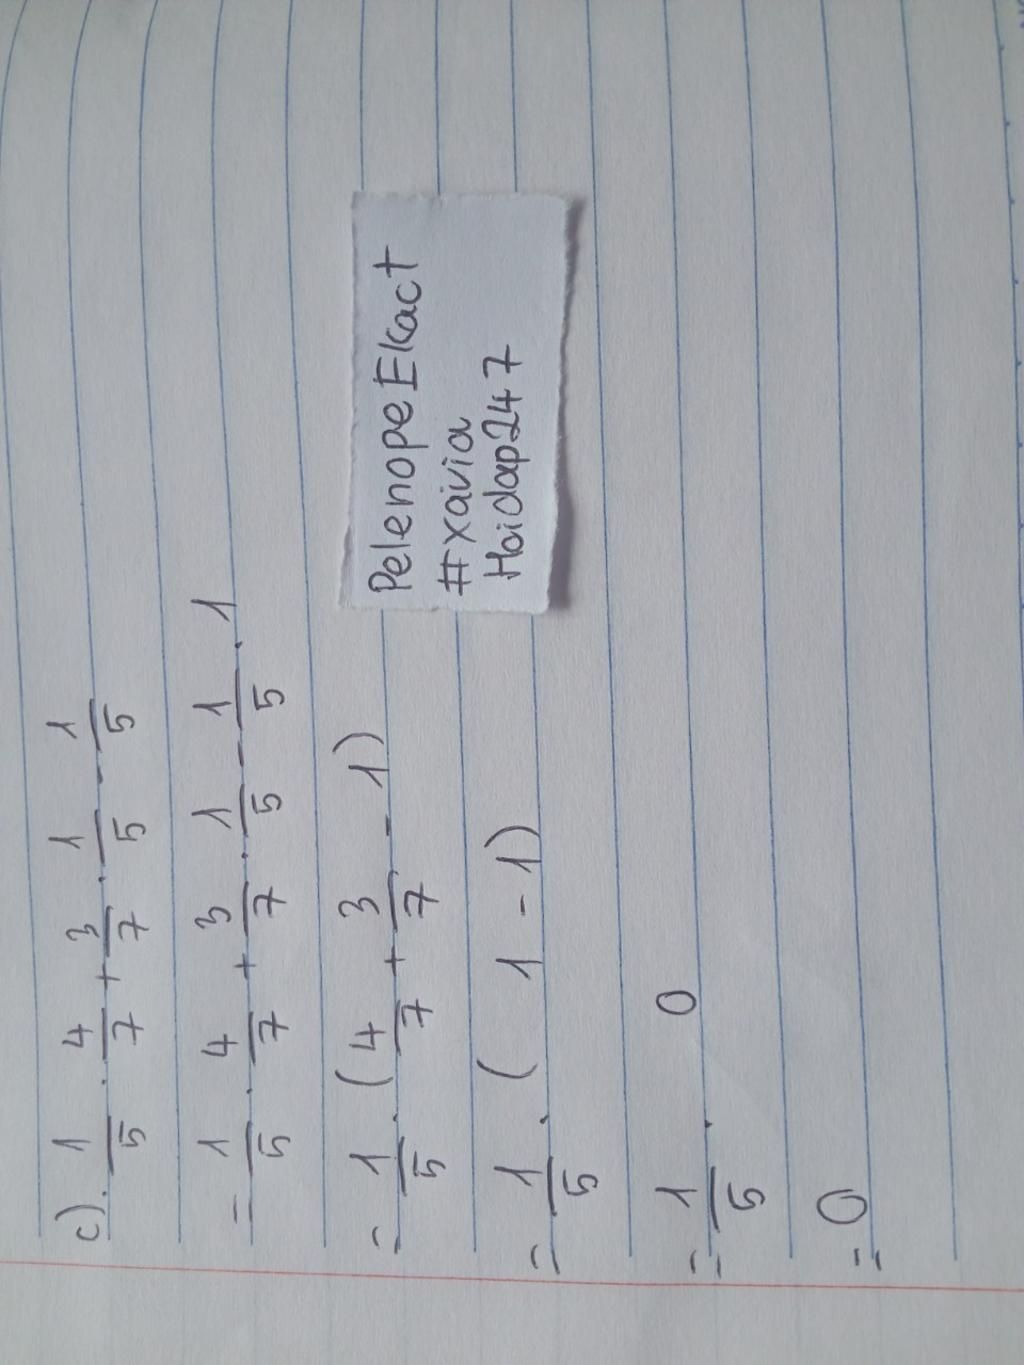 c). 1/5 . 4/7 + 3/7 . 1/5 - 1/5
= 1/5 . 4/7 + 3/7 . 1/5 - 1/5 . 1
= 1/5 . (4/7 + 3/7 - 1)
= 1/5 . ( 1 - 1)
= 1/5 . 0
= 0
PelenopeEkact
#xavia
Hoidap247